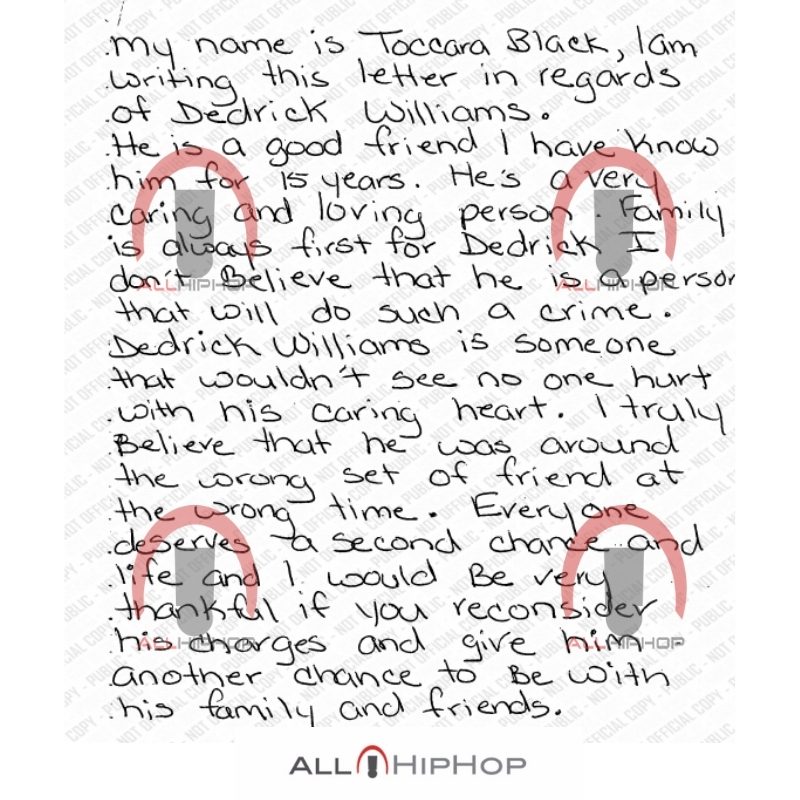 My name is Toccara Black, I am
writing this letter in regards
of Dedrick Williams.
He is a good friend I have know
him for 15 years. He's a very
caring and loving person. Family
is always first for Dedrick I
don't Believe that he is a person
that will do such a crime.
Dedrick Williams is someone
that wouldn't see no one hurt
with his caring heart. I truly
Believe that he was around
the wrong set of friend at
the wrong time. Everyone
deserves a second chance and
life and I would Be very
thankful if you reconsider
his charges and give him
another chance to Be with
his family and friends.
ALLHIPHOP
ALLHIPHOP
ALLHIPHOP
ALLHIPHOP
ALL HIPHOP
PUBLIC - NOT OFFICIAL COPY - PUBLIC - NOT OFFICIAL COPY